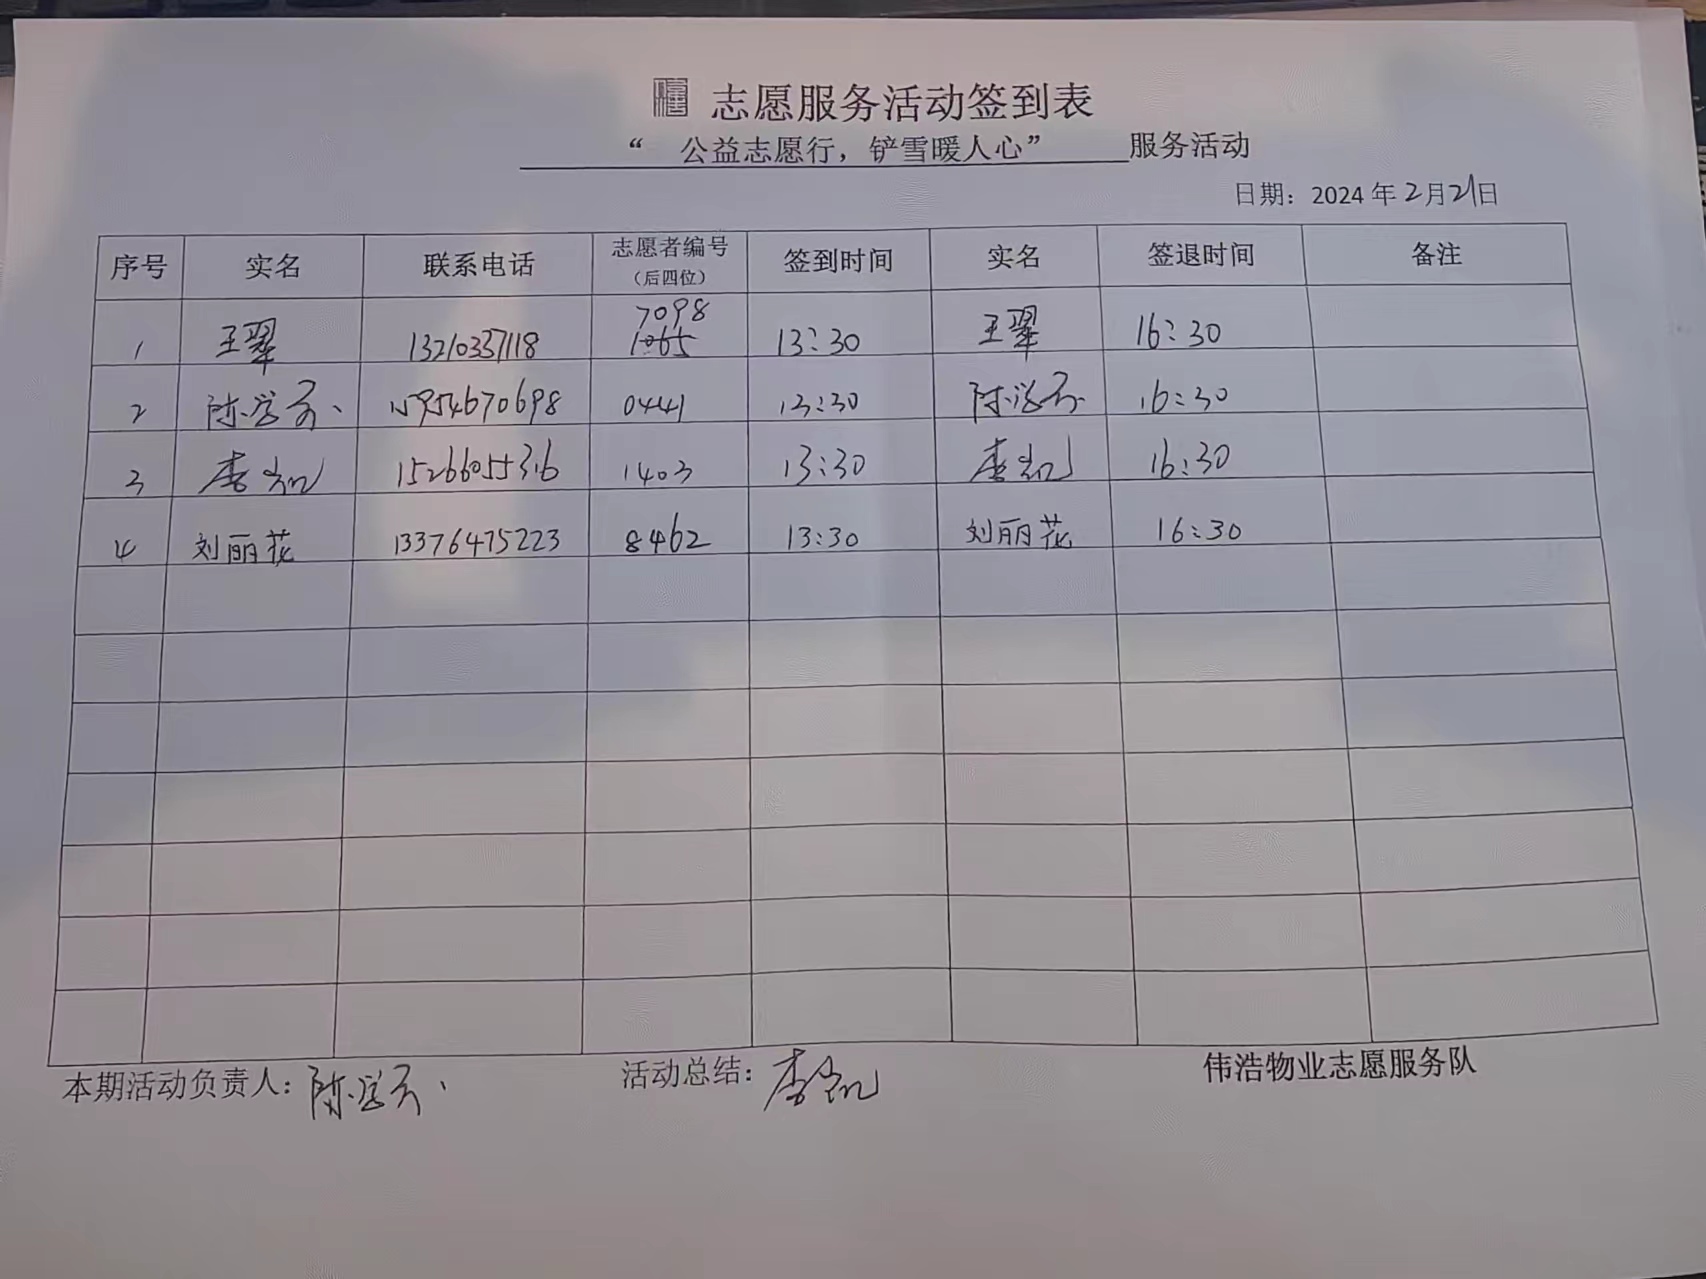 志愿服务活动签到表
“ 公益志愿行，铲雪暖人心” 服务活动
日期：2024年2月21日
序号 实名 联系电话 志愿者编号（后四位） 签到时间 实名 签退时间 备注
7098
1 王翠 13210337118 1065 13:30 王翠 16:30
2 陈学 15954670698 0441 13:30 陈学 16:30
3 李凯 15266055316 1403 13:30 李凯 16:30
4 刘丽花 13376475223 8462 13:30 刘丽花 16:30
本期活动负责人：陈学 活动总结：李凯 伟浩物业志愿服务队